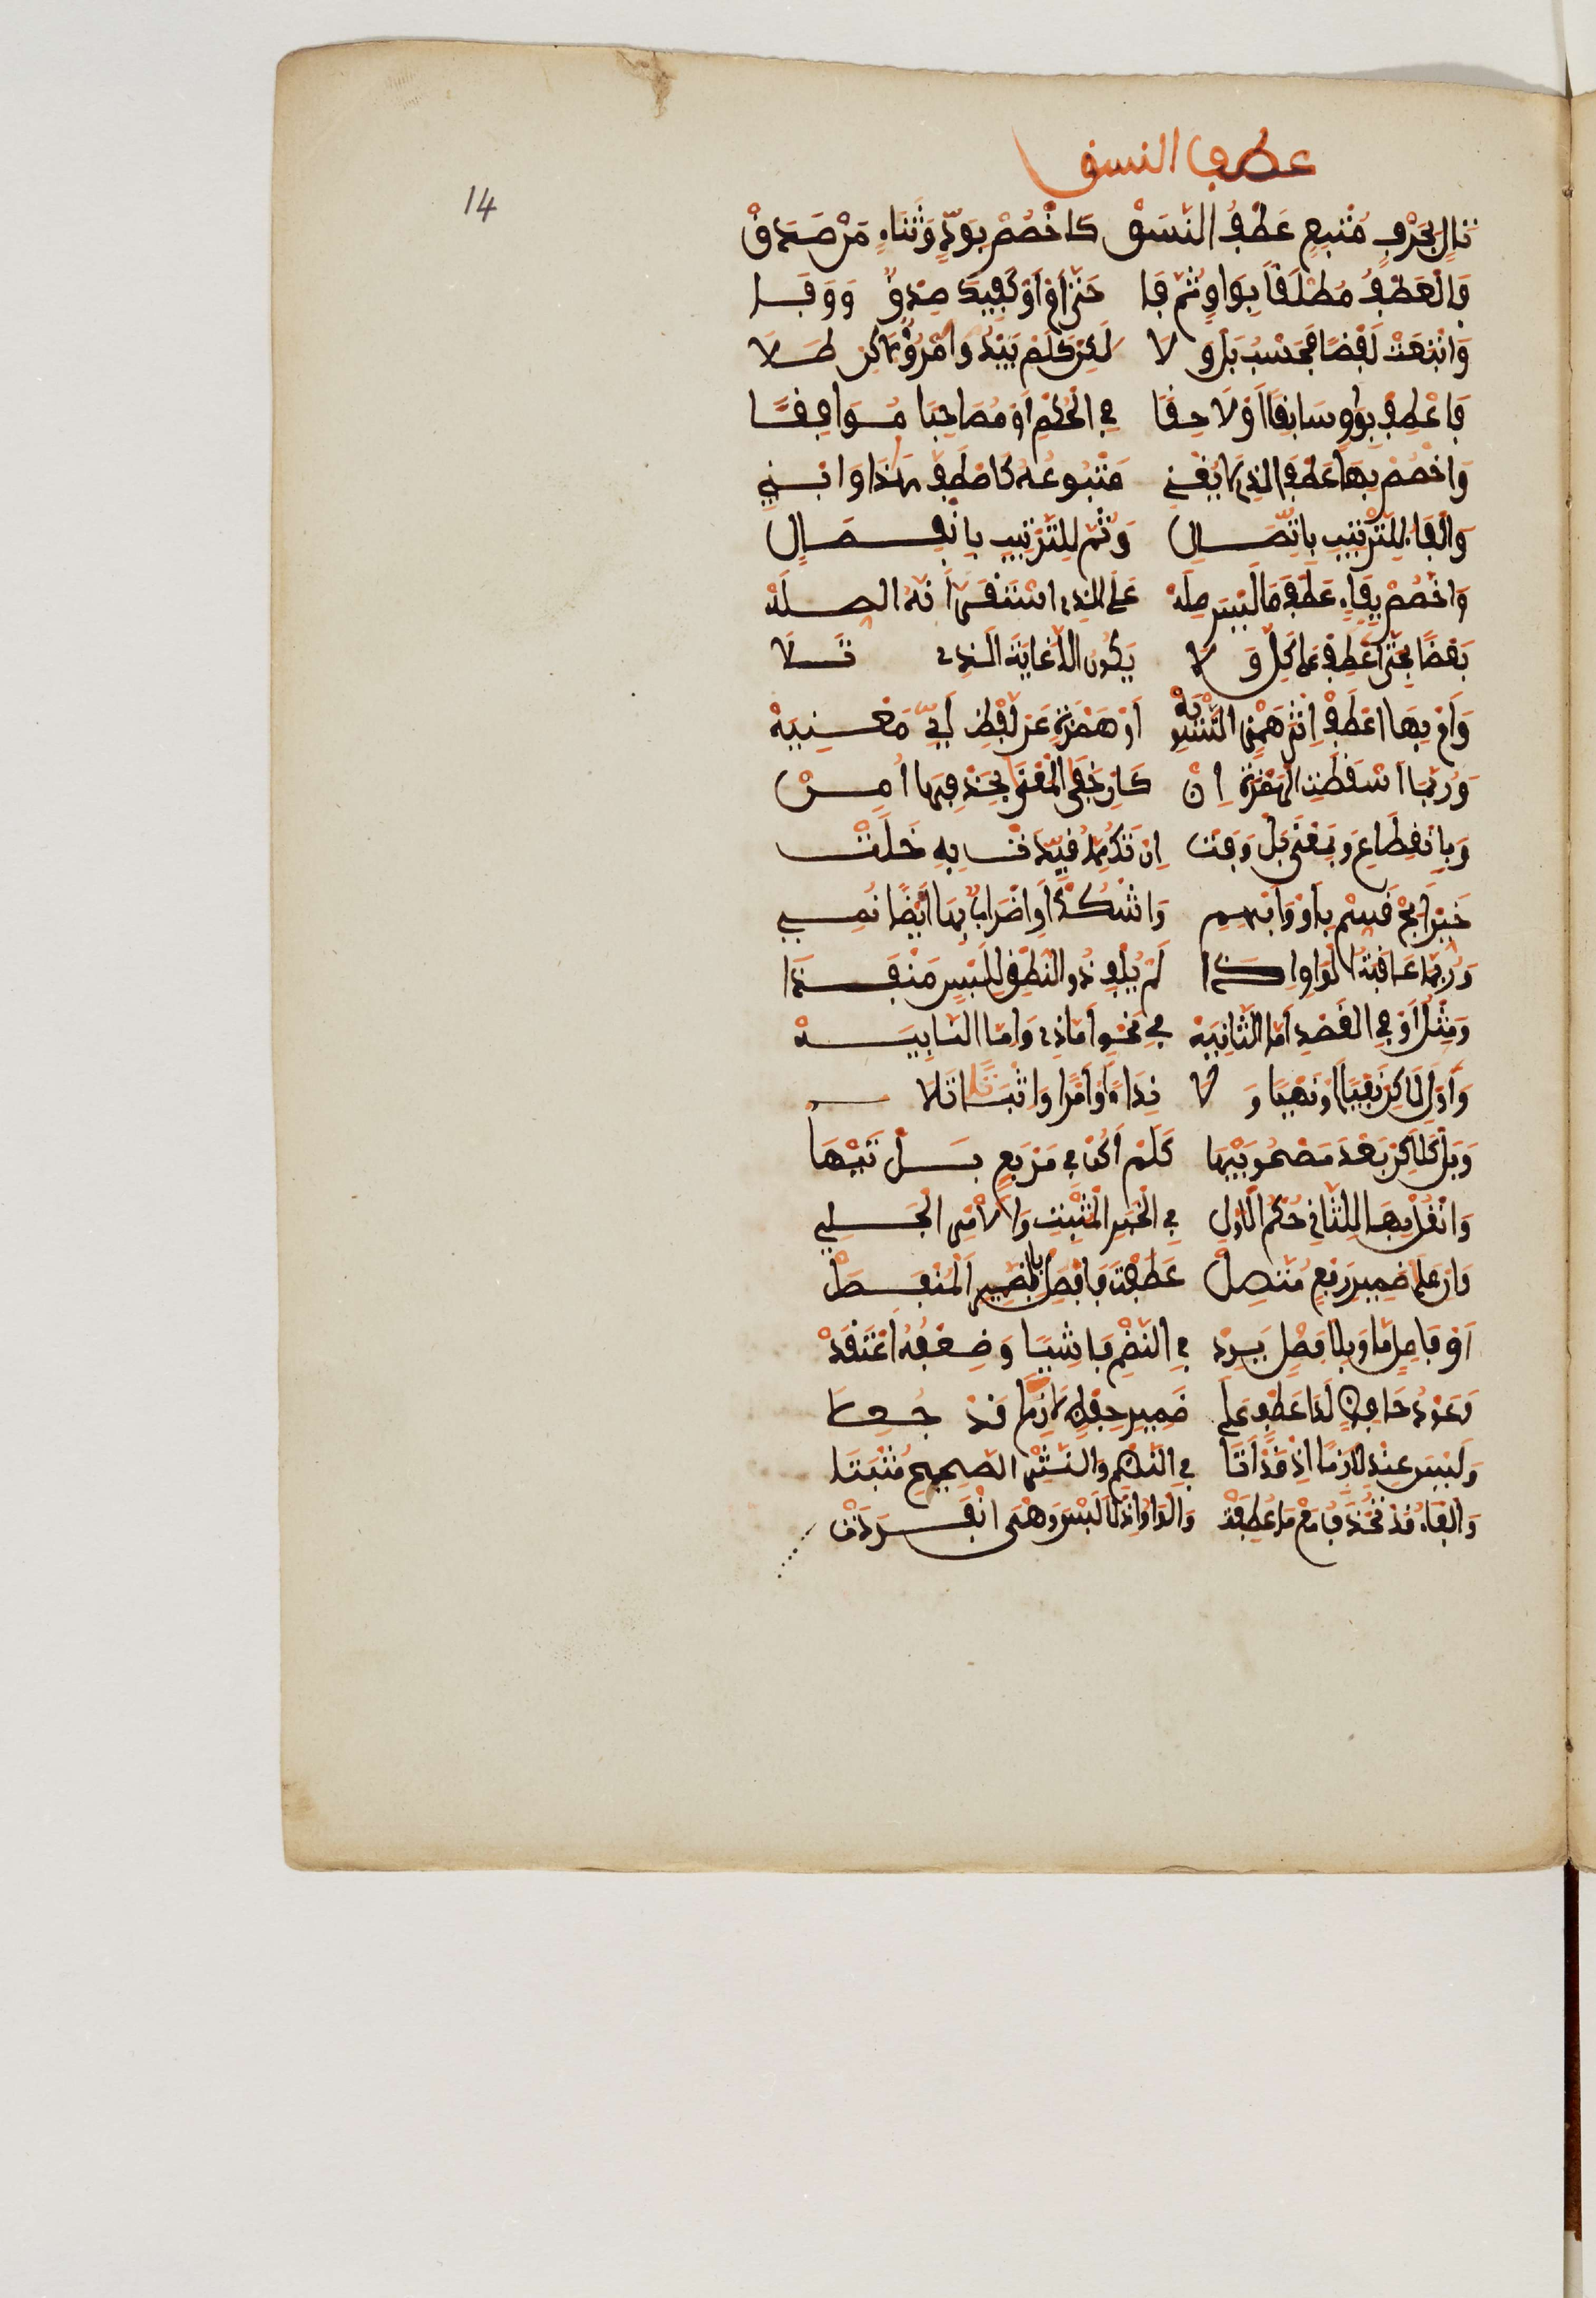 عطف النسق
14
تَالٍ بِحَرْفٍ مُتْبِعٍ عَطْفُ النَّسَقْ كَاخْصُصْ بِوُدٍّ وَثَنَاءٍ مَنْ صَدَقْ
فَالْعَطْفُ مُطْلَقًا بِوَاوٍ ثُمَّ فَا حَتَّى أَمْ أَوْ كَفِيكَ صِدْقٌ وَوَفَا
وَأَتْبَعَتْ لَفْظًا فَحَسْبُ بَلْ وَلَا لَكِنْ كَلَمْ يَبْدُ امْرُؤٌ لَكِنْ طَلَا
فَاعْطِفْ بِوَاوٍ سَابِقًا أَوْ لَاحِقَا فِي الْحُكْمِ أَوْ مُصَاحِبًا مُوَافِقَا
وَاخْصُصْ بِهَا عَطْفَ الَّذِي لَا يُغْنِي مَتْبُوعُهُ كَاصْطَفَّ هَذَا وَابْنِي
وَالْفَاءُ لِلتَّرْتِيبِ بِاتِّصَالِ وَثُمَّ لِلتَّرْتِيبِ بِانْفِصَالِ
وَاخْصُصْ بِفَاءٍ عَطْفَ مَا لَيْسَ صِلَهْ عَلَى الَّذِي اسْتَقَرَّ أَنَّهُ الصِّلَهْ
بَعْضًا بِحَتَّى اعْطِفْ عَلَى كُلٍّ وَلَا يَكُونُ إِلَّا غَايَةَ الَّذِي تَلَا
وَأَمْ بِهَا اعْطِفْ إِثْرَ هَمْزِ التَّسْوِيَهْ أَوْ هَمْزَةٍ عَنْ لَفْظِ أَيٍّ مُغْنِيَهْ
وَرُبَّمَا أُسْقِطَتِ الْهَمْزَةُ إِنْ كَانَ خَفَى الْمَعْنَى بِحَذْفِهَا أُمِنْ
وَبِانْقِطَاعٍ وَبِمَعْنَى بَلْ وَفَتْ إِنْ تَكُ مِمَّا قُيِّدَتْ بِهِ خَلَتْ
خَيِّرْ أَبِحْ قَسِّمْ بِأَوْ وَأَبْهِمِ وَاشْكُكْ أَوِ اضْرَابٌ بِهَا أَيْضًا نُمِي
وَرُبَّمَا عَاقَبَتِ الْوَاوَ إِذَا لَمْ يُلْفِ ذُو النُّطْقِ لِلَبْسٍ مَنْفَذَا
وَمِثْلُ أَوْ فِي الْقَصْدِ إِمَّا الثَّانِيَهْ فِي نَحْوِ إِمَّا ذِي وَإِمَّا النَّائِيَهْ
وَأَوْلِ لَكِنْ نَفْيًا أَوْ نَهْيًا وَلَا نِدَاءً أَوْ أَمْرًا وَإِثْبَاتًا تَلَا
وَبَلْ كَلَكِنْ بَعْدَ مَصْحُوبَيْهَا كَلَمْ أَكُنْ فِي مَرْبَعٍ بَلْ تَيْهَا
وَانْقُلْ بِهَا لِلثَّانِي حُكْمَ الْأَوَّلِ فِي الْخَبَرِ الْمُثْبَتِ وَالْأَمْرِ الْجَلِي
وَإِنْ عَلَى ضَمِيرِ رَفْعٍ مُتَّصِلْ عَطَفْتَ فَافْصِلْ بِالضَّمِيرِ الْمُنْفَصِلْ
أَوْ فَاصِلٍ مَا وَبِلَا فَصْلٍ يَرِدْ فِي النَّظْمِ فَاشِيًا وَضَعْفَهُ اعْتَقِدْ
وَعَوْدُ خَافِضٍ لَدَى عَطْفٍ عَلَى ضَمِيرِ خَفْضٍ لَازِمًا قَدْ جُعِلَا
وَلَيْسَ عِنْدِي لَازِمًا إِذْ قَدْ أَتَا فِي النَّظْمِ وَالنَّثْرِ الصَّحِيحِ مُثْبَتَا
وَالْفَاءُ قَدْ تُحْذَفُ مَعْ مَا عَطَفَتْ وَالْوَاوُ إِذْ لَا لَبْسَ وَهْيَ انْفَرَدَتْ